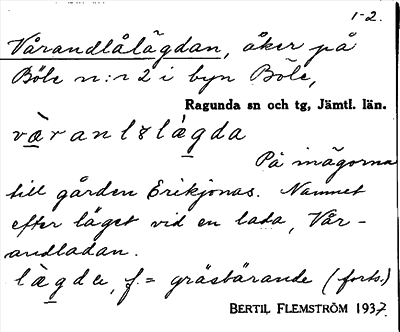 1-2.
Vårandlålägdan, åker på
Böle n:r 2 i byn Böle,
Ragunda sn och tg, Jämtl. län.
På inägorna
till gården Erikjonas. Namnet
efter läget vid en lada, Vår-
andladan.
lägde, f. = gräsbärande (forts.)
BERTIL FLEMSTRÖM 1937.